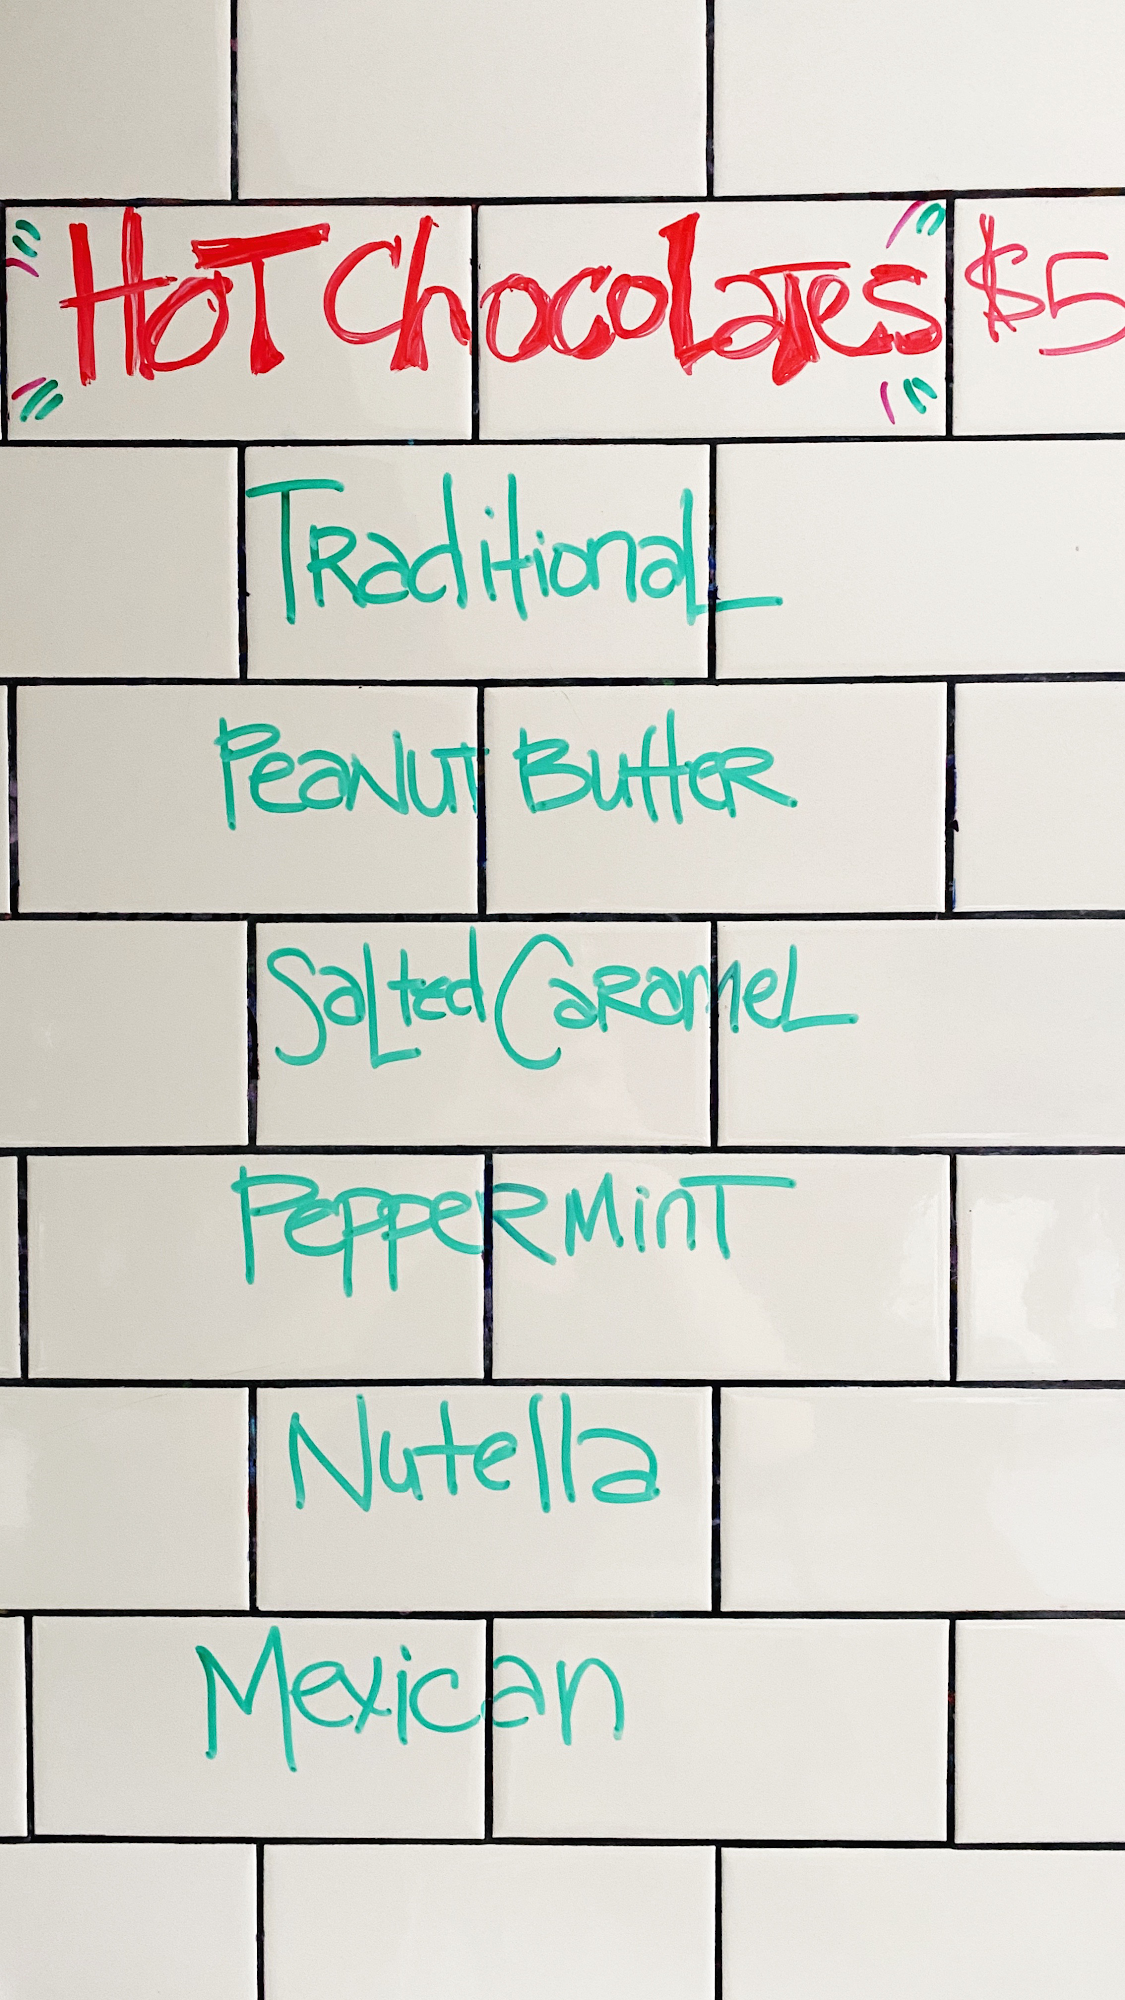 Hot Chocolates $5
Traditional
Peanut Butter
Salted Caramel
Peppermint
Nutella
Mexican